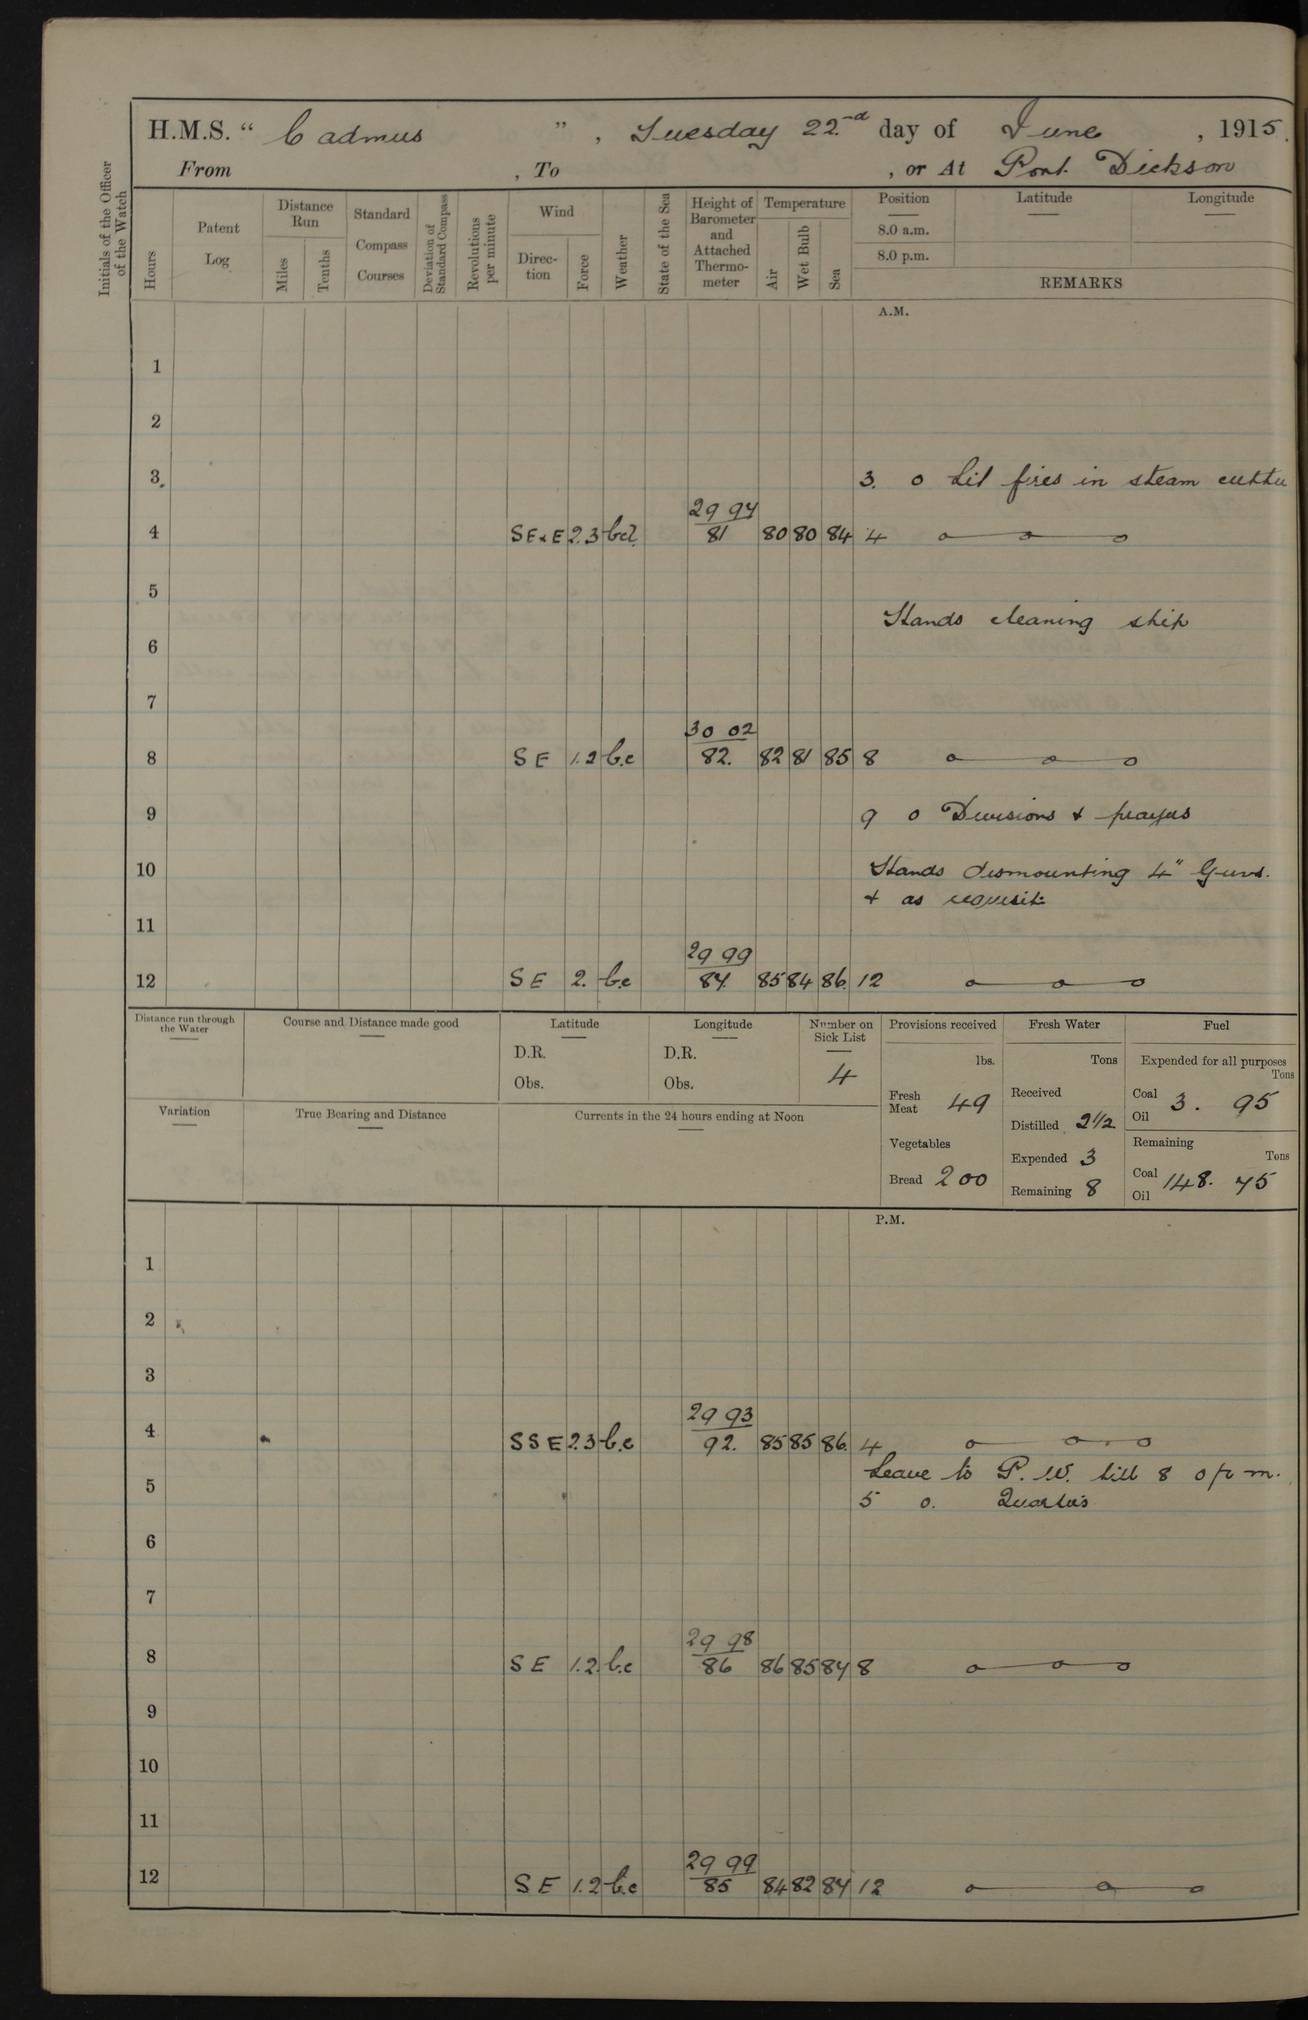 H.M.S. “ Cadmus ” , Tuesday 22nd day of June , 1915.
From , To , or At Port Dickson
Initials of the Officer of the Watch
Hours
Patent Log
Distance Run
Miles
Tenths
Standard Compass Courses
Deviation of Standard Compass
Revolutions per minute
Wind
Direc-tion
Force
Weather
State of the Sea
Height of Barometer and Attached Thermo-meter
Temperature
Air
Wet Bulb
Sea
Position Latitude Longitude
8.0 a.m.
8.0 p.m.
REMARKS
A.M.
1
2
3. 3. 0 Lit fires in steam cutter
29 94
4 SE x E 2.3 bcl. 81 80 80 84 4
5
Hands cleaning ship
6
7
30 02
8 SE 1.2 b.c 82. 82 81 85 8
9 9 0 Divisions & prayers
10 Hands dismounting 4" Guns.
& as requisite
11
29 99
12 SE 2. b.c 84. 85 84 86. 12
Distance run through the Water
Course and Distance made good
Latitude
D.R.
Obs.
Longitude
D.R.
Obs.
Number on Sick List
4
Variation
True Bearing and Distance
Currents in the 24 hours ending at Noon
Provisions received
lbs.
Fresh Meat 49
Vegetables
Bread 200
Fresh Water
Tons
Received
Distilled 2 1/2
Expended 3
Remaining 8
Fuel
Expended for all purposes
Tons
Coal 3. 95
Oil
Remaining
Tons
Coal 148. 75
Oil
P.M.
1
2
3
29 93
4 SSE 2.3 b.c 92. 85 85 86. 4
Leave to P.W. till 8 0 p m.
5 5 0. Quarters
6
7
29 98
8 SE 1.2. b.c 86 86 85 84 8
9
10
11
29 99
12 SE 1.2 b.c 85 84 82 84 12